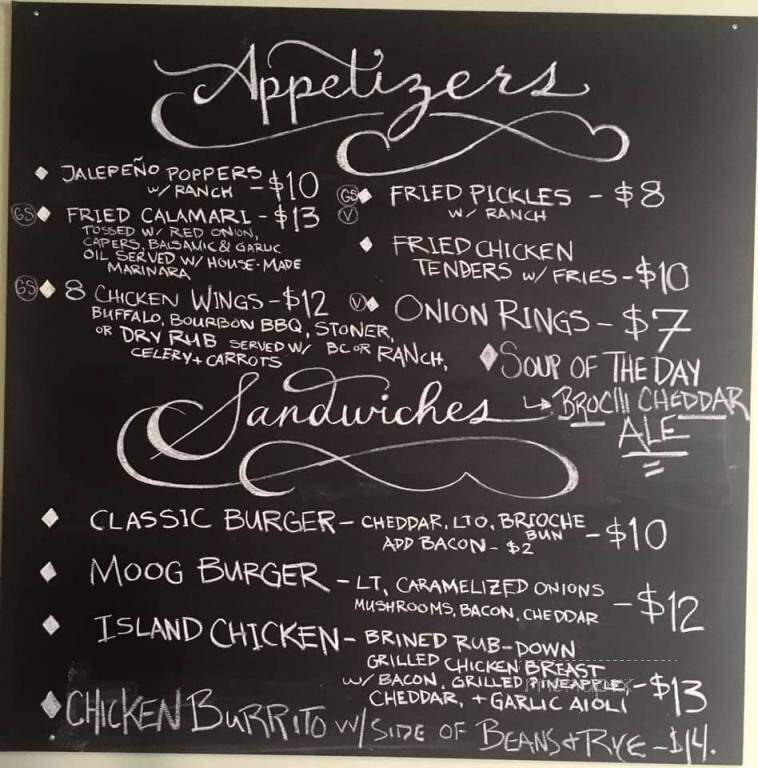 Appetizers
JALEPEÑO POPPERS
W/ RANCH - $10
GS FRIED CALAMARI - $13
TOSSED W/ RED ONION,
CAPERS, BALSAMIC & GARLIC
OIL SERVED W/ HOUSE-MADE
MARINARA
GS 8 CHICKEN WINGS - $12
BUFFALO, BOURBON BBQ, STONER,
OR DRY RUB SERVED W/ BC OR RANCH,
CELERY + CARROTS
GS V FRIED PICKLES - $8
W/ RANCH
FRIED CHICKEN
TENDERS W/ FRIES - $10
V ONION RINGS - $7
SOUP OF THE DAY
CHEDDAR
ALE
Sandwiches
CLASSIC BURGER - CHEDDAR, LTO, BRIOCHE
BUN - $10
ADD BACON - $2
MOOG BURGER - LT, CARAMELIZED ONIONS
MUSHROOMS, BACON, CHEDDAR - $12
ISLAND CHICKEN - BRINED RUB-DOWN
GRILLED CHICKEN BREAST
W/ BACON, GRILLED PINEAPPLE - $13
CHEDDAR, + GARLIC AIOLI
CHICKEN BURRITO W/ SIDE OF BEANS & RYCE - $14.